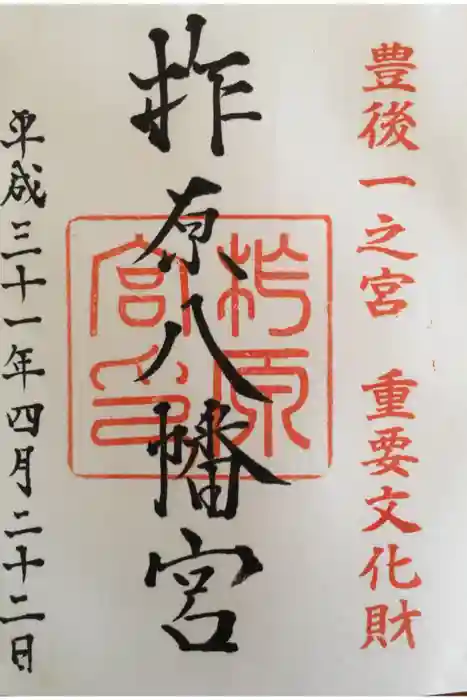 豊後一之宮　重要文化財
柞原八幡宮
柞原宮印
平成三十一年四月二十二日